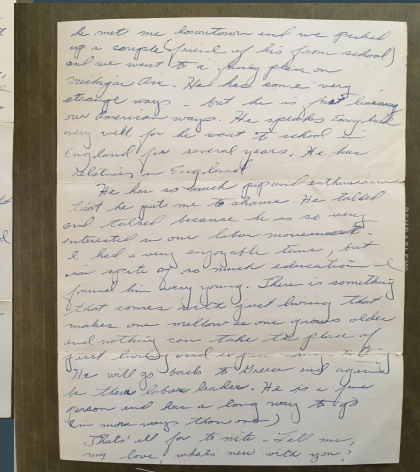 he met me downtown and we picked
up a couple (friend of his from school)
and we went to a fancy place on
Michigan Ave. He has some very
strange ways - but he is just learning
our American ways. He speaks English
very well for he went to school in
England for several years. He has
relatives in England.
He has so much pep and enthusiasm
that he put me to shame. He talked
and talked because he is so very
interested in our labor movement.
I had a very enjoyable time, but
in spite of so much education - I
found him very young. There is something
that comes with just living that
makes one mellow as one grows older
and nothing can take the place of
just living and
He will go back to Greece and again
be their labor leader. He is a fine
person and has a long way to go
(in more ways than one)
That's all for to nite - Tell me,
my love, what's new with you?